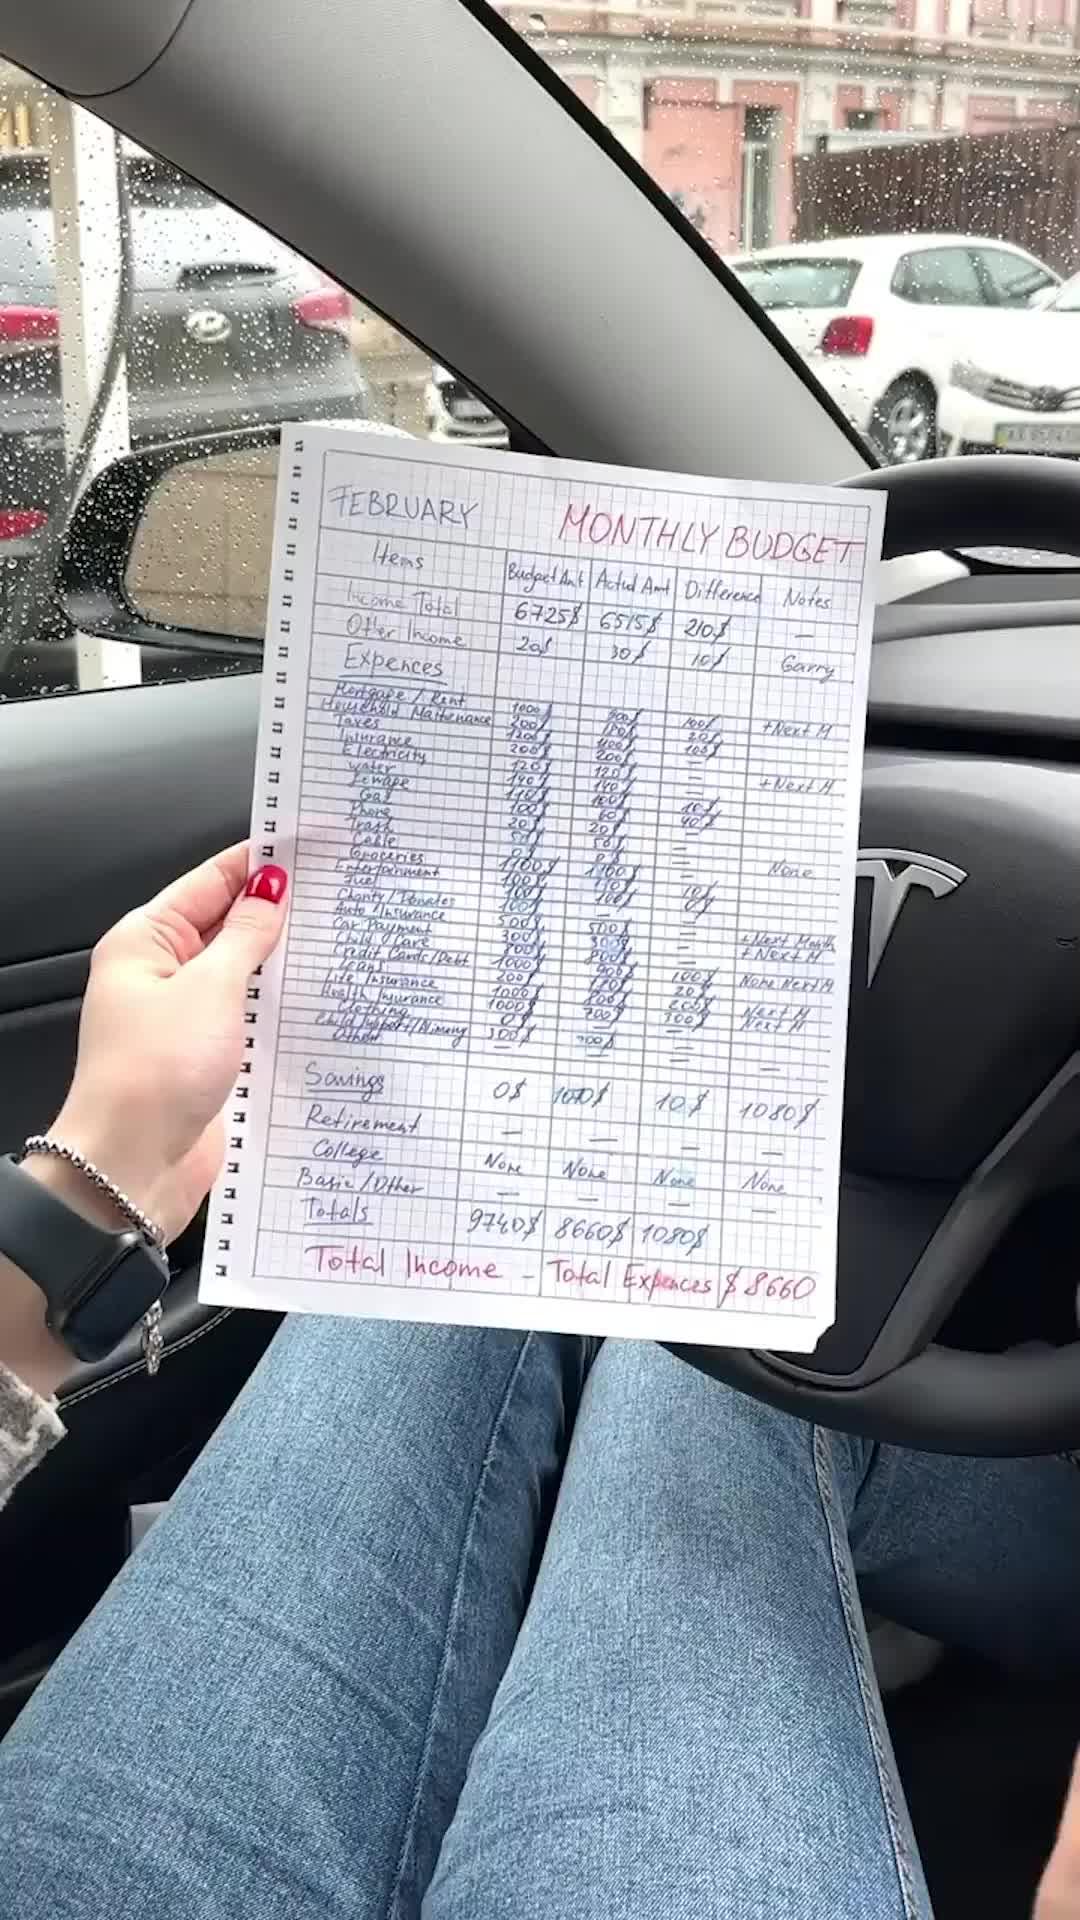 FEBRUARY MONTHLY BUDGET
Items Budget Amt Actual Amt Difference Notes
Income Total 6725$ 6515$ 210$ —
Other Income 20$ 30$ 10$ Garry
Expences
Mortgage / Rent 1000$ 900$ 100$ +Next M
Household Maintenance 200$ 180$ 20$
Taxes
Insurance 200$ 200$ —
Electricity 120$ 120$ —
Water 140$ 140$ — +Next M
Sewage 110$ 100$ 10$
Gas 100$ 60$ 40$
Phone 20$ 20$ —
Trash 50$ 50$ —
Cable 0$ 0$ — None
Groceries 1100$ 1100$ —
Entertainment
Fuel 100$ 100$
Charity / Donates 100$ —
Auto / Insurance 500$ 500$ — +Next Month
Car Payment 300$ 300$ — +Next M
Child Care 800$ 800$ —
Credit Cards / Debt 1000$ 900$ 100$ None Next M
Loans 200$ 20$
Life Insurance 1000$ 800$ 200$ Next M
Health Insurance 1000$ 700$ 300$ Next M
Clothing 0$ — —
Child Support / Alimony 300$ 300$ —
Other — — — —
Savings 0$ 1070$ 10$ 1080$
Retirement — — — —
College None None None None
Basic / Other — — — —
Totals 9740$ 8660$ 1080$
Total Income – Total Expences $8660